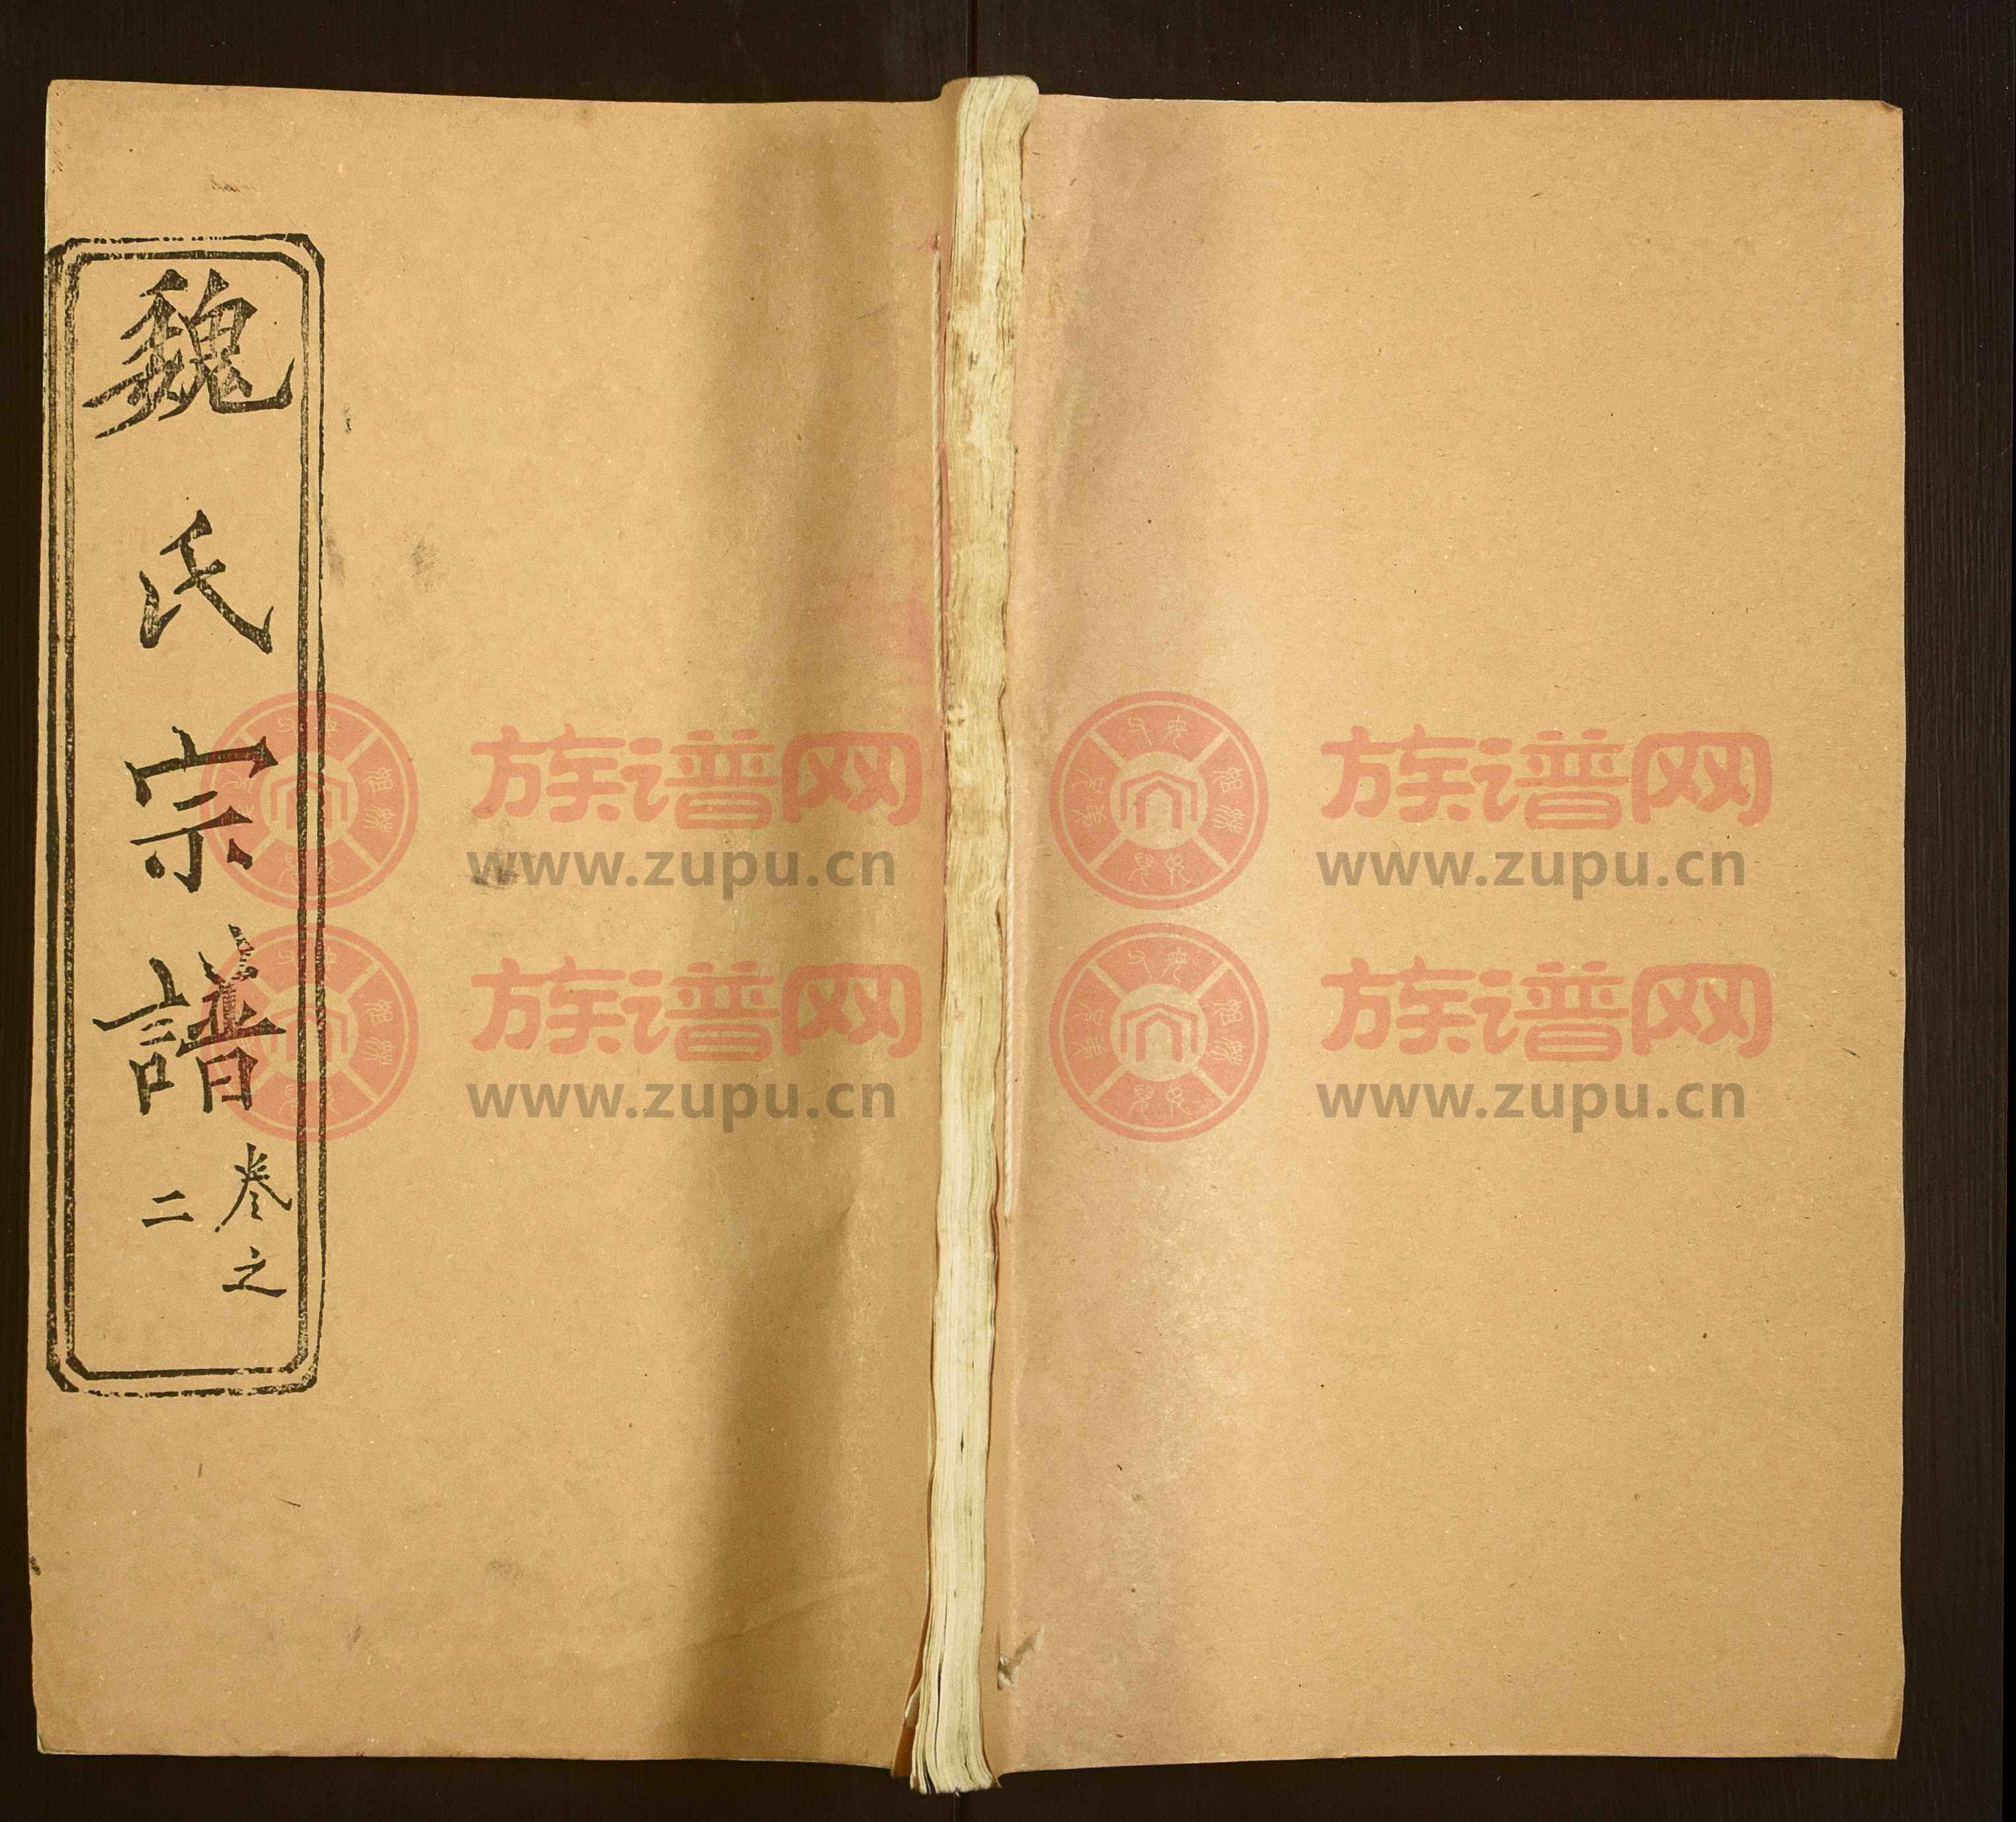 魏氏宗譜
卷之
二
族谱网
www.zupu.cn
族谱网
www.zupu.cn
族谱网
www.zupu.cn
族谱网
www.zupu.cn